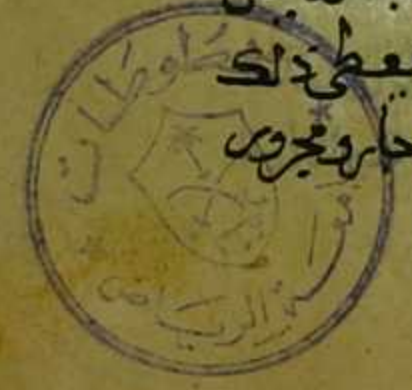 يعطى ذلك
جار ومجرور
مخطوطات
الرياض